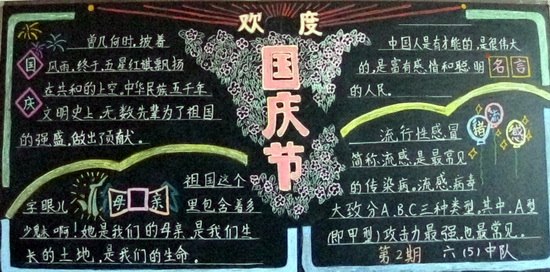 欢度
国庆节
国庆
曾几何时，披着
风雨，终于，五星红旗飘扬
在共和的上空，中华民族五千年
文明史上，无数先辈为了祖国
的强盛，做出了贡献。
母亲
祖国这个
字眼儿里包含着多
少魅啊！她是我们的母亲，是我们生
长的土地，是我们的生命。
名言
中国人是有才能的，是很伟大
的，是富有感情和聪明
的人民。
防流感
流行性感冒
简称流感，是最常见
的传染病。流感病毒
大致分A、B、C三种类型，其中，A型
（即甲型）攻击力最强，也最常见。
第2期 六（5）中队